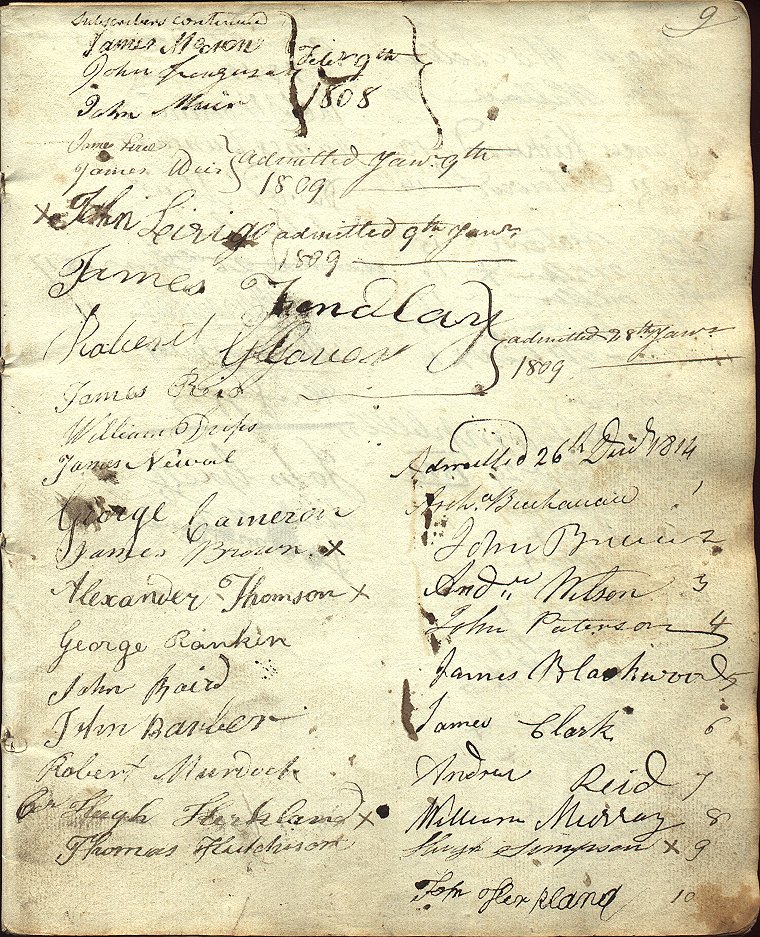 9
Subscribers continued
James
John Ferguson
John Muir
Feby 9th
1808
James
James Weir
admitted Jany 9th
1809
x John
admitted 9th Jany
1809
James Findlay
Robert Glover
admitted 28th Jany
1809
James Reid
William Drips
James Newal
George Cameron
James Brown x
Alexander Thomson x
George Rankin
John Baird
John Barber
Robert Murdoch
Hugh Kirkland x
Thomas Hutchison
Admitted 26th Decr 1814
Archd Buchanan 1
John 2
Andw Wilson 3
John Paterson 4
James Blackwood 5
James Clark 6
Andrew Reid 7
William Murray 8
Hugh Simpson x 9
John Kirkland 10